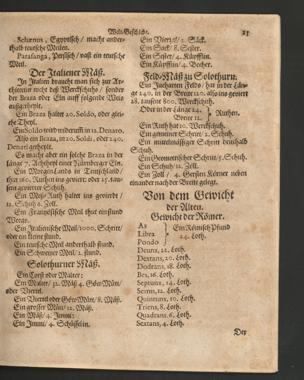 Welt-Beschreib. 21
Schænus, Egyptisch / macht ander-
thalb teutsche Meilen.
Parasanga, Persisch / fast ein teutsche
Meil.
Der Italiener Mäß.
In Italien braucht man sich zur Ar-
der Braza oder Ein auff folgende Weis
Ein Braza haltet 20. Soldo, oder glei-
che Theyl.
Ein Soldo wird widerum in 12. Denaro.
Also ein Braza, in 20. Soldi, oder 240.
Denari getheylt.
Es macht aber ein solche Braza in der
Länge 7. Achtheyl einer Nürnberger Ein.
Ein Morgen-Lands in Teutschland /
Ein Meß-Ruth haltet
Schuh / 12. Zoll.
Ein Frantzösische Meil thut einfünff
Ein Italienische Meil / 1000. Schritt /
oder ein kleine stund.
Ein teutsche Meil anderthalb stund.
Ein Schweitzer Meil / 2. stund.
Solothurner Mäß.
Ein Corst oder Malter:
Ein Malter / 12. Mäß 4. Gör-Müt /
oder Viertel.
Ein Viertel oder Gör-Müt / 8. Mäß.
Ein grosser Müt / 12. Mäß.
Ein Mäß / 4. Immi:
Ein Immi / 4. Schüsselin.
Ein Viertzel / 2. Säck.
Ein Sack / 8. Sester.
Ein Sester / 4. Küpfflin.
Ein Küpfflin / 4. Becher.
Feld-Mäß zu Solothurn.
Ein Jucharten Feldes / hat in der Län-
ge 240. in der Breite 120. also ins gevierd
28. tausent 800. Werckschuh.
Oder in der Länge 24.
Breite 12. Ruthen.
Ein Ruth hat 10. Werckschuh.
Ein gemeiner Schritt / 2. Schuh.
Ein mittelmässiger Schritt dritthalb
Schuh.
Ein Geometrischer Schritt / 5. Schuh.
Ein Schuh / 12. Zoll.
Ein Zoll / 4. Gersten Körner neben
einander nach der Breite gelegt.
Von dem Gewicht
der Alten.
Gewicht der Römer.
As
Libra
Pondo
Ein Römisch Pfund
24. Loth.
Deunx, 22. Loth.
Dextans, 20. Loth.
Dodrans, 18. Loth.
Bes, 16. Loth.
Septunx, 14. Loth.
Semis, 12. Loth.
Quintunx, 10. Loth.
Triens, 8. Loth.
Quadrans, 6. Loth.
Sextans, 4. Loth.
Der